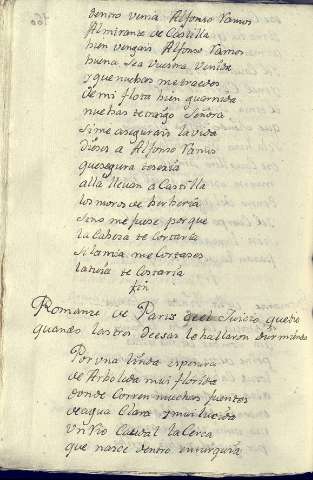 dentro venia Alfonso Ramos
Almirante de Castilla
bien vengais Alfonso Ramos
buena sea vuestra venida
y que nuebas me traedes
de mi flota bien guarnida
nuebas te traigo Señora
si me asegurais la vida
digas a Alfonso Ramos
que segura te seria
alla llevan a Castilla
los moros de berberia
sino me fuese porque
la Cabeza te cortaria
si la mia me Cortases
la tuia te Costaria
fin
Romanze de Paris de el Juicio que dio
quando las tres deesas le hallaron durmiendo
Por una linda espesura
de Arboleda mui florida
donde Corren muchas fuentes
de agua Clara y mui lucida
un rio Caudal la Cerca
que nasce dentro en turquia